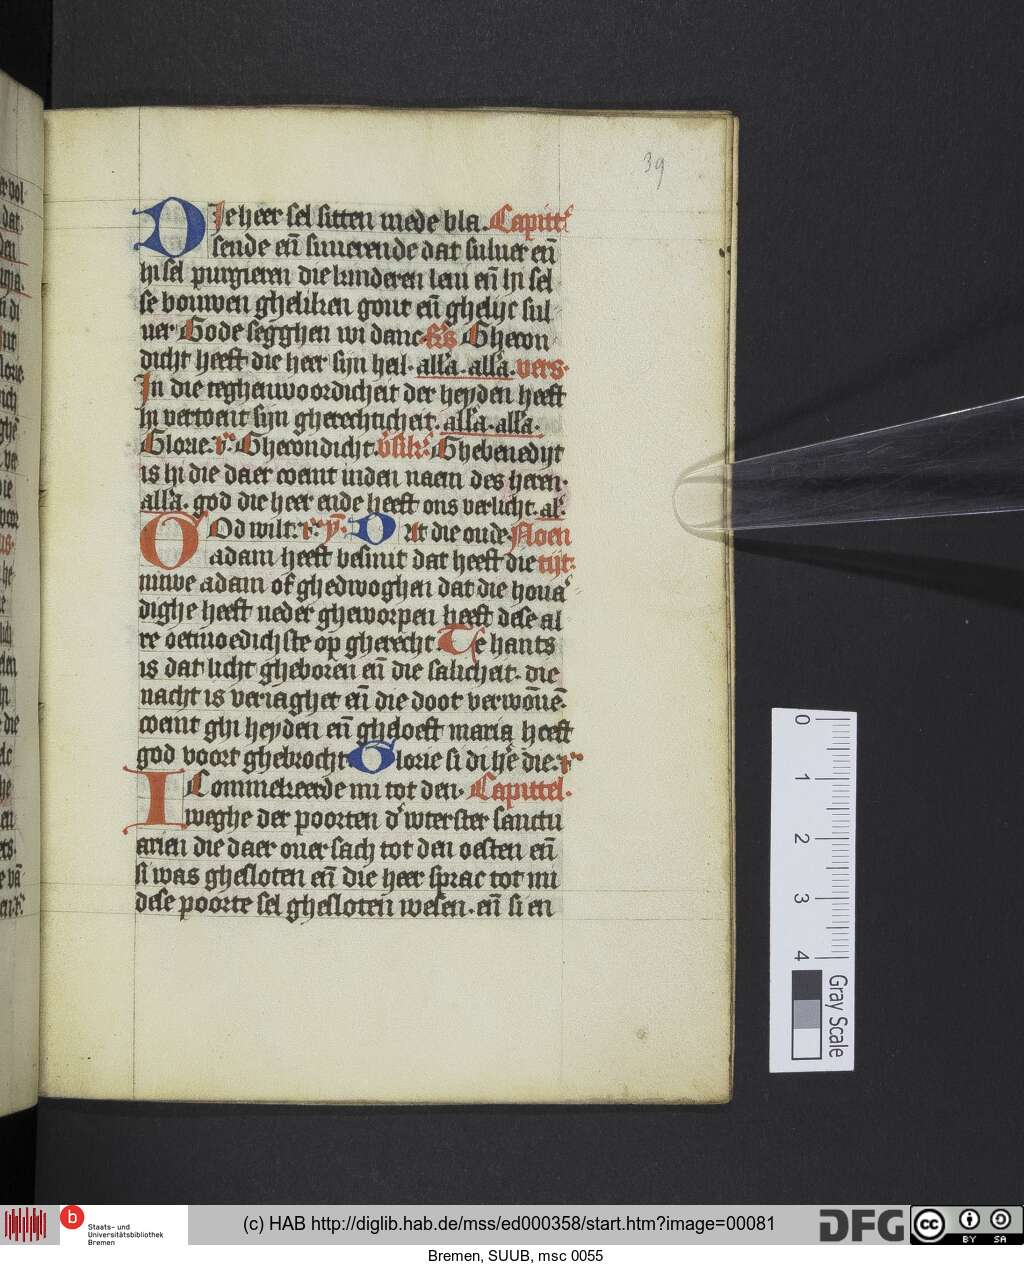 39
DIe heer sel sitten mede bla. Capitt̃
sende eñ suuerende dat suluer eñ
hi sel purgieren die kinderen leui eñ hi sel
se bouwen gheliken gout eñ ghelijc sul
uer Gode segghen wi danc. Ghecon
dicht heeft die heer sijn heil. all'a. all'a. vers.
In die teghenwoordicheit der heyden heeft
hi vertoent sijn gherechticheit. all'a. all'a.
Glorie. r̃. Ghecondicht. v̾sikl̾. Ghebenedijt
is hi die daer coemt inden naem des heren.
all'a. god die heer ende heeft ons verlicht. al̾.
GOd wilt. r̃. ỹ. Dat die oude Noen
adam heeft besmit dat heeft die tijt.
nuwe adam of ghedwoghen dat die houa̾
dighe heeft neder gheworpen heeft dese al
re oetmoedichste op gherecht. Te hants
is dat licht gheboren eñ die salicheit. die
nacht is veriaghet eñ die doot verwoñeñ.
coemt ghi heyden eñ gheloeft maria heeft
god voort ghebrocht Glorie si di hẽ die. r̃.
IC ommekeerde mi tot den. Capittel.
weghe der poorten d̾ wterster sanctu
arien die daer ouer sach tot den oesten eñ
si was ghesloten eñ die heer sprac tot mi
dese poorte sel ghesloten wesen. eñ si en
0
1
2
3
4
Gray Scale
b Staats- und
Universitätsbibliothek
Bremen
(c) HAB http://diglib.hab.de/mss/ed000358/start.htm?image=00081
DFG
cc BY SA
Bremen, SUUB, msc 0055